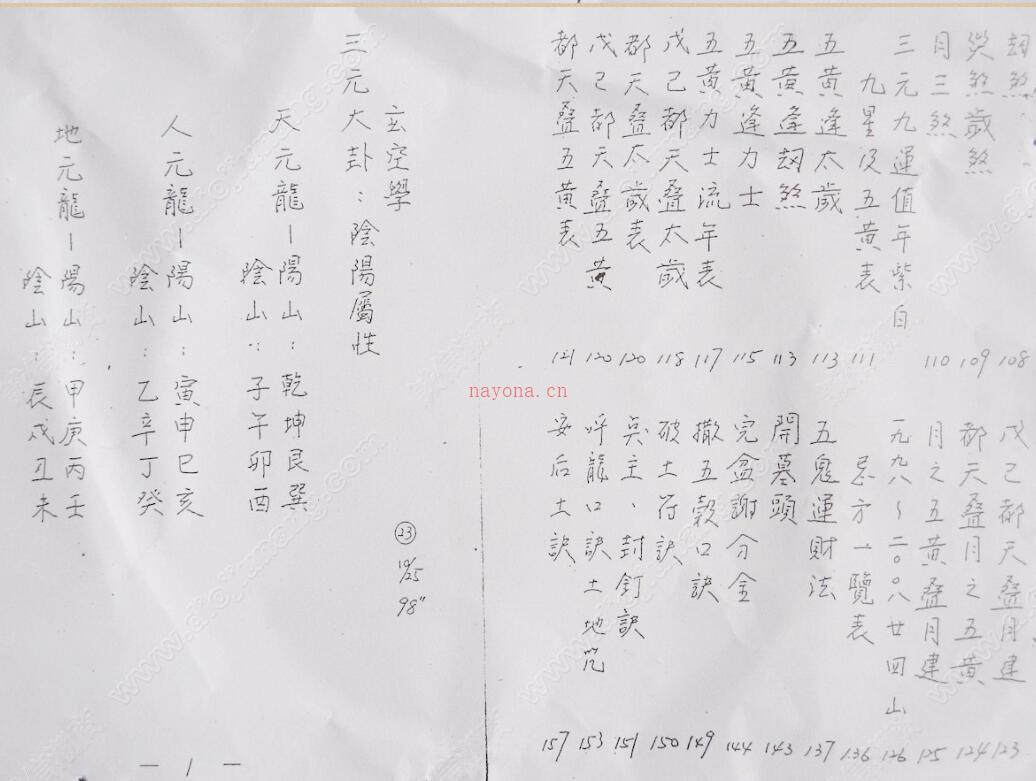 劫煞 108
災煞歲煞 109
月三煞 110
三元九運值年紫白
九星及五黃表 111
五黃逢太歲 113
五黃逢劫煞 113
五黃逢力士 115
五黃力士流年表 117
戊己都天疊太歲 118
都天疊太歲表 120
戊己都天疊五黃 120
都天疊五黃表 121
戊己都天疊月建 123
都天疊月之五黃 124
月之五黃疊月建 125
一九九八~二〇〇八廿四山 126
忌方一覽表 136
五鬼運財法 137
開墓頭 143
完盆謝分金 144
撒五穀口訣 149
破土符訣 150
點主、封釘訣 151
呼龍口訣土地咒 153
安后土訣 157
玄空學
三元大卦:陰陽屬性
天元龍-陽山:乾坤艮巽
陰山:子午卯酉
人元龍-陽山:寅申巳亥
陰山:乙辛丁癸
地元龍-陽山:甲庚丙壬
陰山:辰戌丑未
23
10/25
98"
-1-
nayona.cn